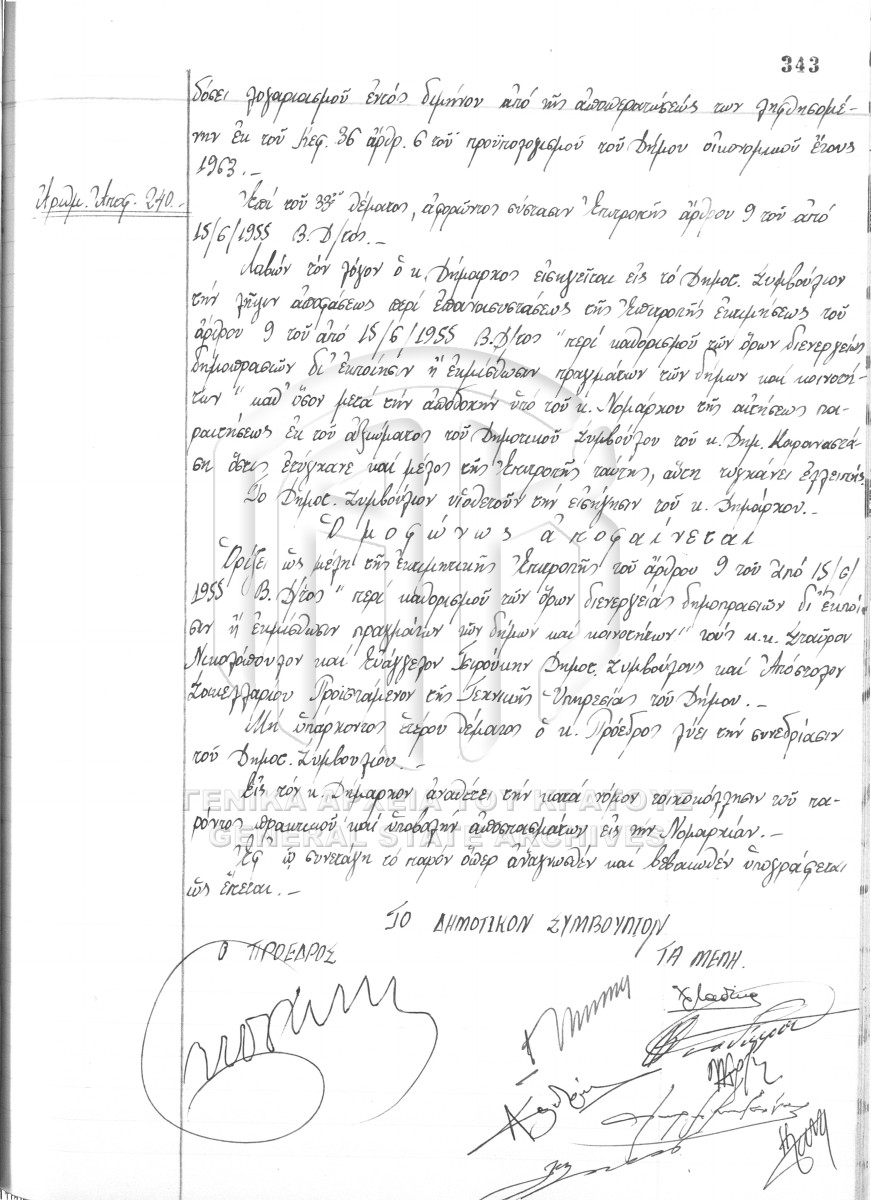 343
δόσει λογαριασμοῦ ἐντός διμήνου ἀπό τῆς ἀποπερατώσεώς των ληφθησομέ-
νην ἐκ τοῦ Κεφ. 36 ἄρθρ. 6 τοῦ προϋπολογισμοῦ τοῦ Δήμου οἰκονομικοῦ ἔτους
1963.-
Ἀριθμ. Ἀποφ. 240.-
Ἐπί τοῦ 33ου θέματος, ἀφορῶντος σύστασιν Ἐπιτροπῆς ἄρθρου 9 τοῦ ἀπό
15/6/1955 Β.Δ/τος.-
Λαβών τόν λόγον ὁ κ. Δήμαρχος εἰσηγεῖται εἰς τό Δημοτ. Συμβούλιον
τήν λῆψιν ἀποφάσεως περί ἐπανασυστάσεως τῆς Ἐπιτροπῆς ἐκτιμήσεως τοῦ
ἄρθρου 9 τοῦ ἀπό 15/6/1955 Β.Δ/τος "περί καθορισμοῦ τῶν ὅρων διενεργείας
δημοπρασιῶν δι' ἐκποίησιν ἤ ἐκμίσθωσιν πραγμάτων τῶν δήμων καί κοινοτή-
των" καθ' ὅσον μετά τήν ἀποδοχήν ὑπό τοῦ κ. Νομάρχου τῆς αἰτήσεως πα-
ραιτήσεως ἐκ τοῦ ἀξιώματος τοῦ Δημοτικοῦ Συμβούλου τοῦ κ. Δημ. Καραναστά-
ση ὅστις ἐτύγχανε καί μέλος τῆς Ἐπιτροπῆς ταύτης, αὕτη τυγχάνει ἐλλειπής.
Τό Δημοτ. Συμβούλιον υἱοθετοῦν τήν εἰσήγησιν τοῦ κ. Δημάρχου.-
Ὁμοφώνως ἀποφαίνεται
Ὁρίζει ὡς μέλη τῆς ἐκτιμητικῆς Ἐπιτροπῆς τοῦ ἄρθρου 9 τοῦ ἀπό 15/6/
1955 Β.Δ/τος "περί καθορισμοῦ τῶν ὅρων διενεργείας δημοπρασιῶν δι' ἐκποίη-
σιν ἤ ἐκμίσθωσιν πραγμάτων τῶν δήμων καί κοινοτήτων" τούς κ.κ. Σταῦρον
Νικολόπουλον καί Εὐάγγελον Τσιρούκην Δημοτ. Συμβούλους καί Ἀπόστολον
Σακελλαρίου Προϊστάμενον τῆς Τεχνικῆς Ὑπηρεσίας τοῦ Δήμου.-
Μή ὑπάρχοντος ἑτέρου θέματος ὁ κ. Πρόεδρος λύει τήν συνεδρίασιν
τοῦ Δημοτ. Συμβουλίου.-
Εἰς τόν κ. Δήμαρχον ἀναθέτει τήν κατά νόμον τοιχοκόλλησιν τοῦ πα-
ρόντος πρακτικοῦ καί ὑποβολή ἀποσπασμάτων εἰς τήν Νομαρχίαν.-
ΓΕΝΙΚΑ ΑΡΧΕΙΑ ΤΟΥ ΚΡΑΤΟΥΣ
GENERAL STATE ARCHIVES
Ἐφ' ᾧ συνετάγη τό παρόν ὅπερ ἀναγνωσθέν καί βεβαιωθέν ὑπογράφεται
ὡς ἕπεται.-
ΤΟ ΔΗΜΟΤΙΚΟΝ ΣΥΜΒΟΥΛΙΟΝ
Ο ΠΡΟΕΔΡΟΣ
ΤΑ ΜΕΛΗ.